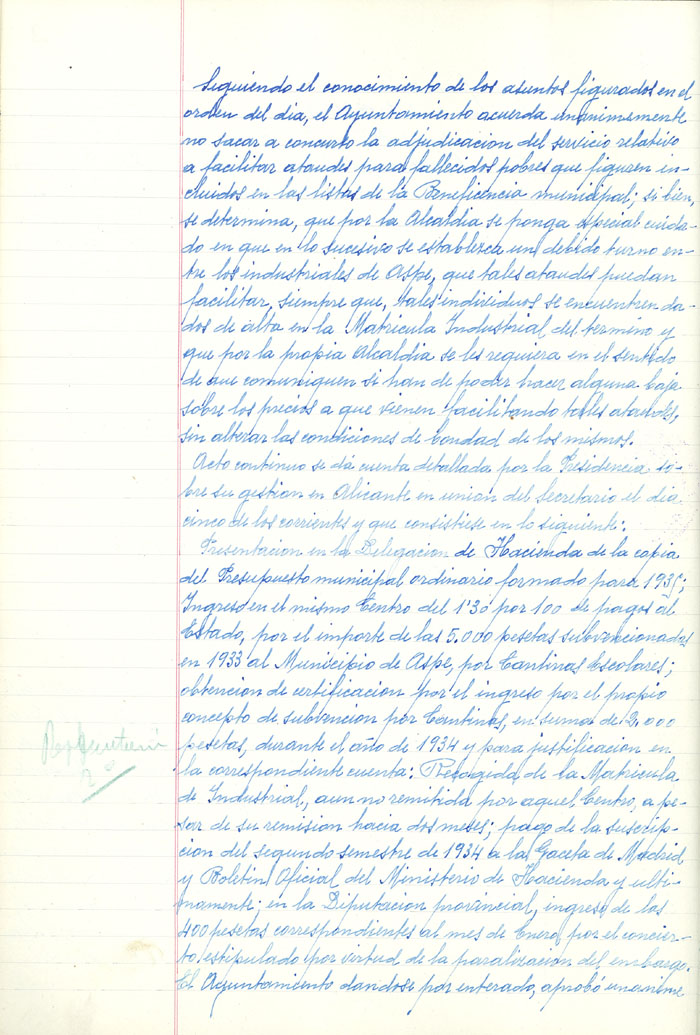 Siguiendo el conocimiento de los asuntos figurados en el
orden del dia, el Ayuntamiento acuerda unanimemente
no sacar a concurso la adjudicacion del servicio relativo
a facilitar ataudes para fallecidos pobres que figuren in-
cluidos en las listas de la Beneficencia municipal; si bien,
se determina, que por la Alcaldia se ponga especial cuida-
do en que en lo sucesivo se establezca un debido turno en-
tre los industriales de Aspe, que tales ataudes puedan
facilitar, siempre que, tales individuos se encuentren da-
dos de alta en la Matricula Industrial del termino y
que por la propia Alcaldia se les requiera en el sentido
de que comuniquen si han de poder hacer alguna baja
sobre los precios a que vienen facilitando tales ataudes,
sin alterar las condiciones de bondad de los mismos.
Acto continuo se dá cuenta detallada por la Presidencia so-
bre su gestion en Alicante en union del Secretario el dia
cinco de los corrientes y que consistiese en lo siguiente:
Presentacion en la Delegacion de Hacienda de la copia
del Presupuesto municipal ordinario formado para 1935;
Ingreso en el mismo Centro del 1'30 por 100 de pagos al
Estado, por el importe de las 5.000 pesetas subvencionadas
en 1933 al Municipio de Aspe, por Cantinas Escolares;
obtencion de certificacion por el ingreso por el propio
concepto de subvencion por Cantinas, en suma de 2.000
pesetas, durante el año de 1934 y para justificacion en
la correspondiente cuenta: Recogida de la Matricula
de Industrial, aun no remitida por aquel Centro, a pe-
sar de su remision hacia dos meses; pago de la suscrip-
cion del segundo semestre de 1934 a la Gaceta de Madrid
y Boletin Oficial del Ministerio de Hacienda y ulti-
mamente; en la Diputacion provincial, ingreso de las
400 pesetas correspondientes al mes de Enero, por el concier-
to estipulado por virtud de la paralizacion del embargo.
El Ayuntamiento dandose por enterado, aprobó unanime